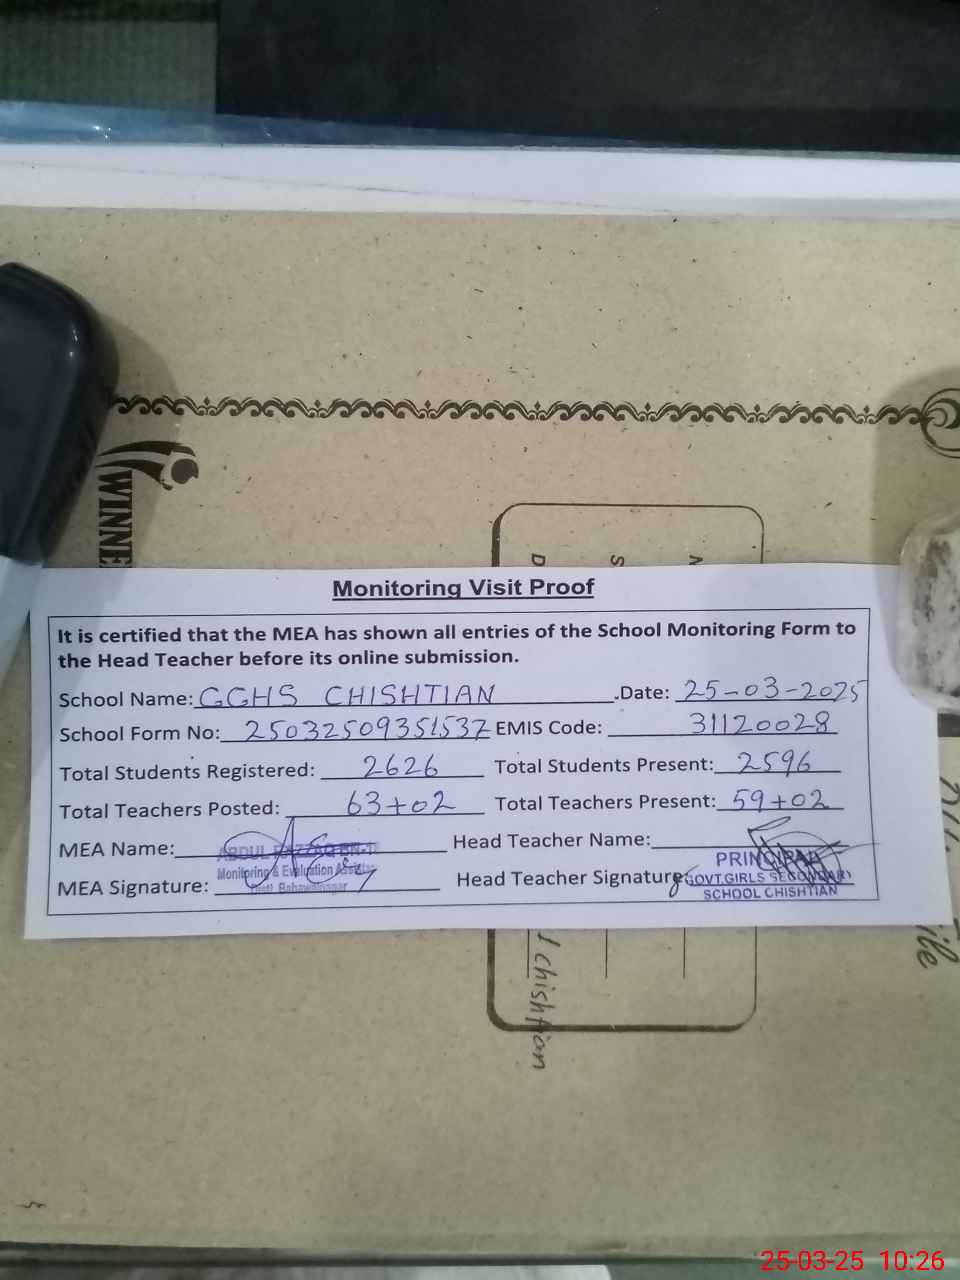 WINNE
D
S
N
Monitoring Visit Proof
It is certified that the MEA has shown all entries of the School Monitoring Form to
the Head Teacher before its online submission.
School Name: GGHS CHISHTIAN .Date: 25-03-2025
School Form No: 25032509351537 EMIS Code: 31120028
Total Students Registered: 2626 Total Students Present: 2596
Total Teachers Posted: 63+02 Total Teachers Present: 59+02
MEA Name: ABDUL RAZZAQ Head Teacher Name:
Monitoring & Evaluation Assistant
Distt. Bahawalnagar
MEA Signature: Head Teacher Signature:
PRINCIPAL
GOVT.GIRLS SECONDARY
SCHOOL CHISHTIAN
chishtian
ile
25-03-25 10:26